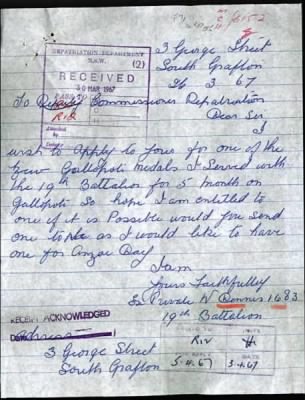 3 George Street
South Grafton
26 3 67
REPATRIATION DEPARTMENT
N.S.W.
(2)
RECEIVED
30 MAR 1967
PASS TO
R.I.V
To Deputy Commissioner Repatriation
Dear Sir
I
wish to Apply to yous for one of the
new Gallopoti Medals I Served with
the 19th Battalion for 5 month on
Gallopoti So hope I am entitled to
one if it is Possible would you Send
one to me as I would like to have
one for Anzac Day
I am
Yours Faithfulley
Ex Private W Dennis 1683
19th Battalion
RECEIPT ACKNOWLEDGED
Address
3 George Street
South Grafton
RIV
5.4.67
5.4.67